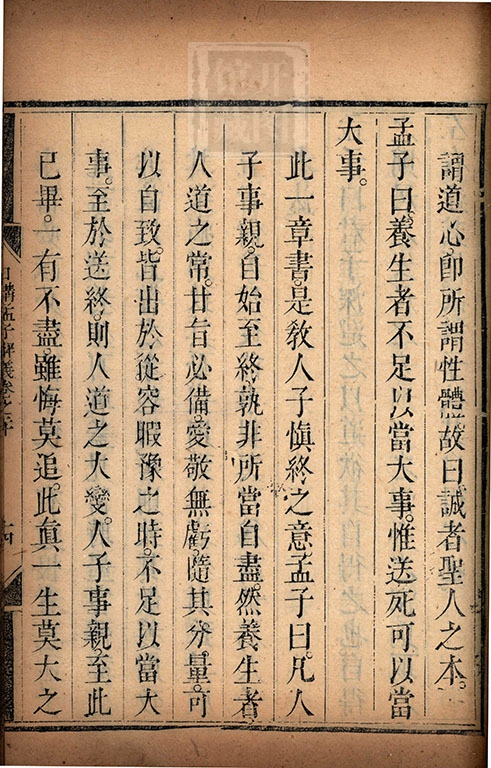 謂道心卽所謂性體故曰誠者聖人之本。
孟子曰養生者不足以當大事。惟送死可以當
大事。
此一章書。是敎人子愼終之意孟子曰。凡人
子事親。自始至終。孰非所當自盡。然養生者
人道之常。甘旨必備。愛敬無虧。隨其分量。可
以自致。皆出於從容暇豫之時。不足以當大
事。至於送終。則人道之大變。人子事親。至此
已畢。一有不盡。雖悔莫追。此眞一生莫大之
日講孟子解義卷之